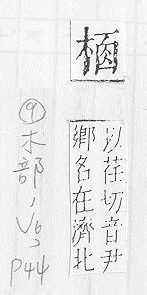 以荏切音尹
鄉名在濟北
⑨木部, V6,
P44